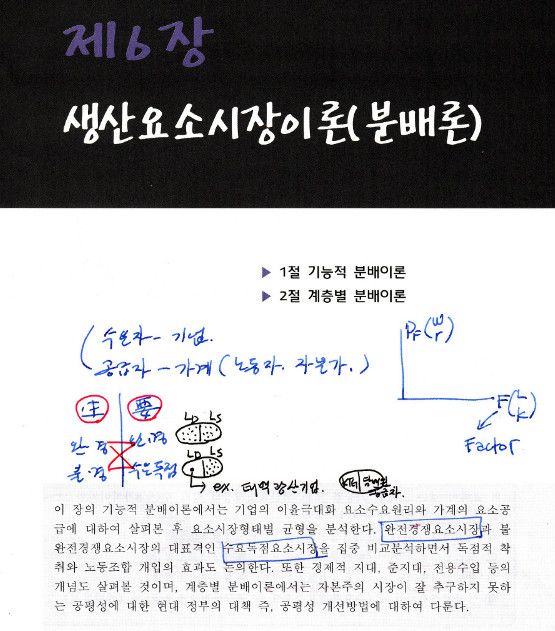 제6장
생산요소시장이론(분배론)
▶ 1절 기능적 분배이론
▶ 2절 계층별 분배이론
수요자 - 기업.
공급자 - 가계 (노동자. 자본가.)
PF(w r)
F(L K)
Factor
生 要
완경 완.경
불.경 수요독점
LD LS
LD LS
→ ex. 태백 광산기업.
KT&G 담배잎 공급자.
이 장의 기능적 분배이론에서는 기업의 이윤극대화 요소수요원리와 가계의 요소공
급에 대하여 살펴본 후 요소시장형태별 균형을 분석한다. 완전경쟁요소시장과 불
완전경쟁요소시장의 대표격인 수요독점요소시장을 집중 비교분석하면서 독점적 착
취와 노동조합 개입의 효과도 논의한다. 또한 경제적 지대, 준지대, 전용수입 등의
개념도 살펴볼 것이며, 계층별 분배이론에서는 자본주의 시장이 잘 추구하지 못하
는 공평성에 대한 현대 정부의 대책 즉, 공평성 개선방법에 대하여 다룬다.